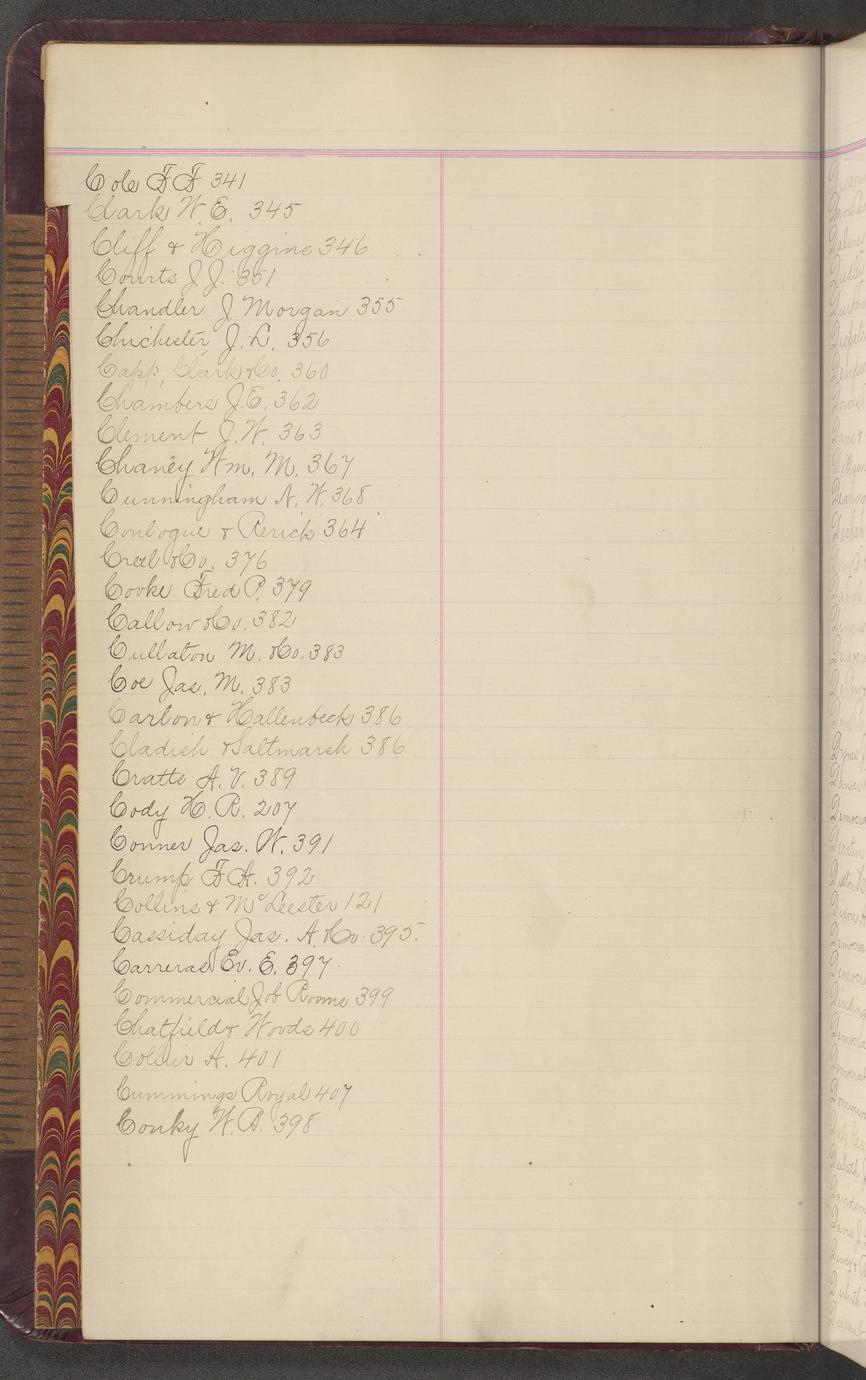 Cole F F 341
Clark W. E. 345
Cliff & Higgins 346
Courts J. J. 351
Chandler J Morgan 355
Chichester J. L. 356
Capp, Clark & Co. 360
Chambers J. E. 362
Clement J. W. 363
Chaney Wm. M. 367
Cunningham N. W. 368
Conlogue & Rerick 364
Creel & Co. 376
Cooke Fred P. 379
Callow & Co. 382
Cullaton M. & Co. 383
Coe Jas. M. 383
Carlon & Hallenbeck 386
Cladish & Saltmarsh 386
Cratts A. V. 389
Cody H. R. 207
Conner Jas. W. 391
Crump F A. 392
Collins & McLeester 121
Cassiday Jas. A. & Co. 395.
Carreras Ev. E. 397
Commercial Job Rooms 399
Chatfield & Woods 400
Collier A. 401
Cummings Royal 407
Conky W. B. 398